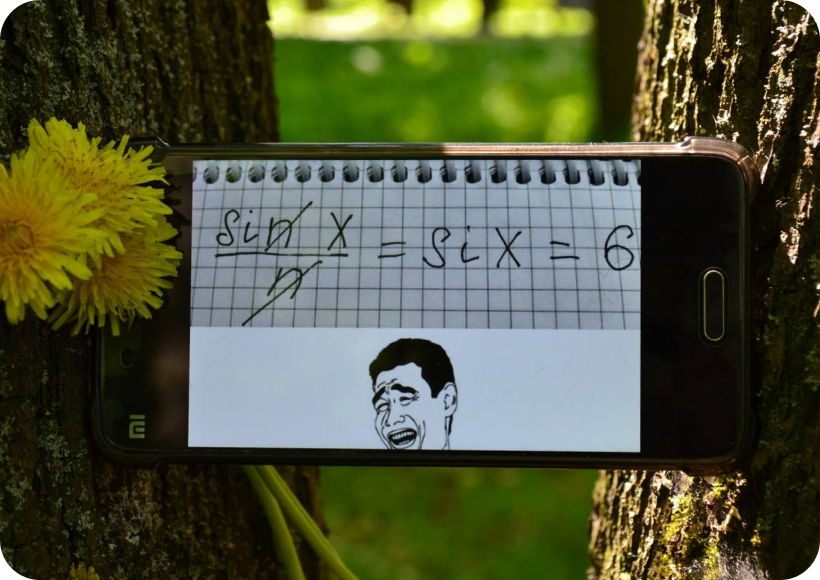 sin x / n = six = 6